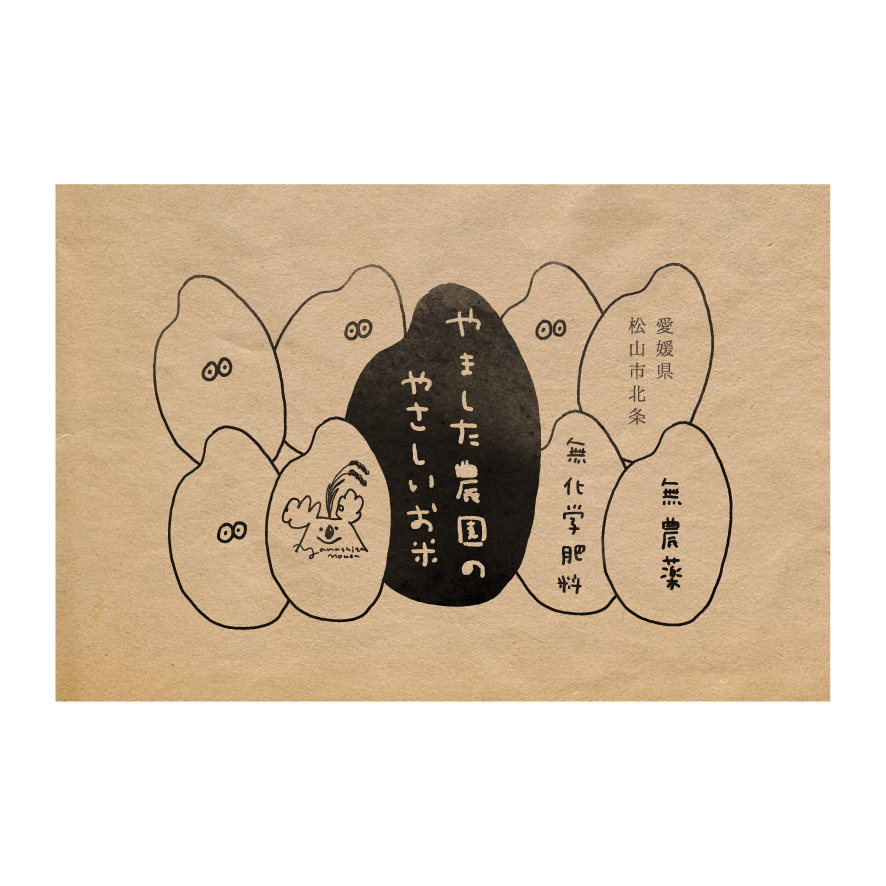 やました農園の
やさしいお米
愛媛県
松山市北条
無農薬
無化学肥料
yamashita
nouen